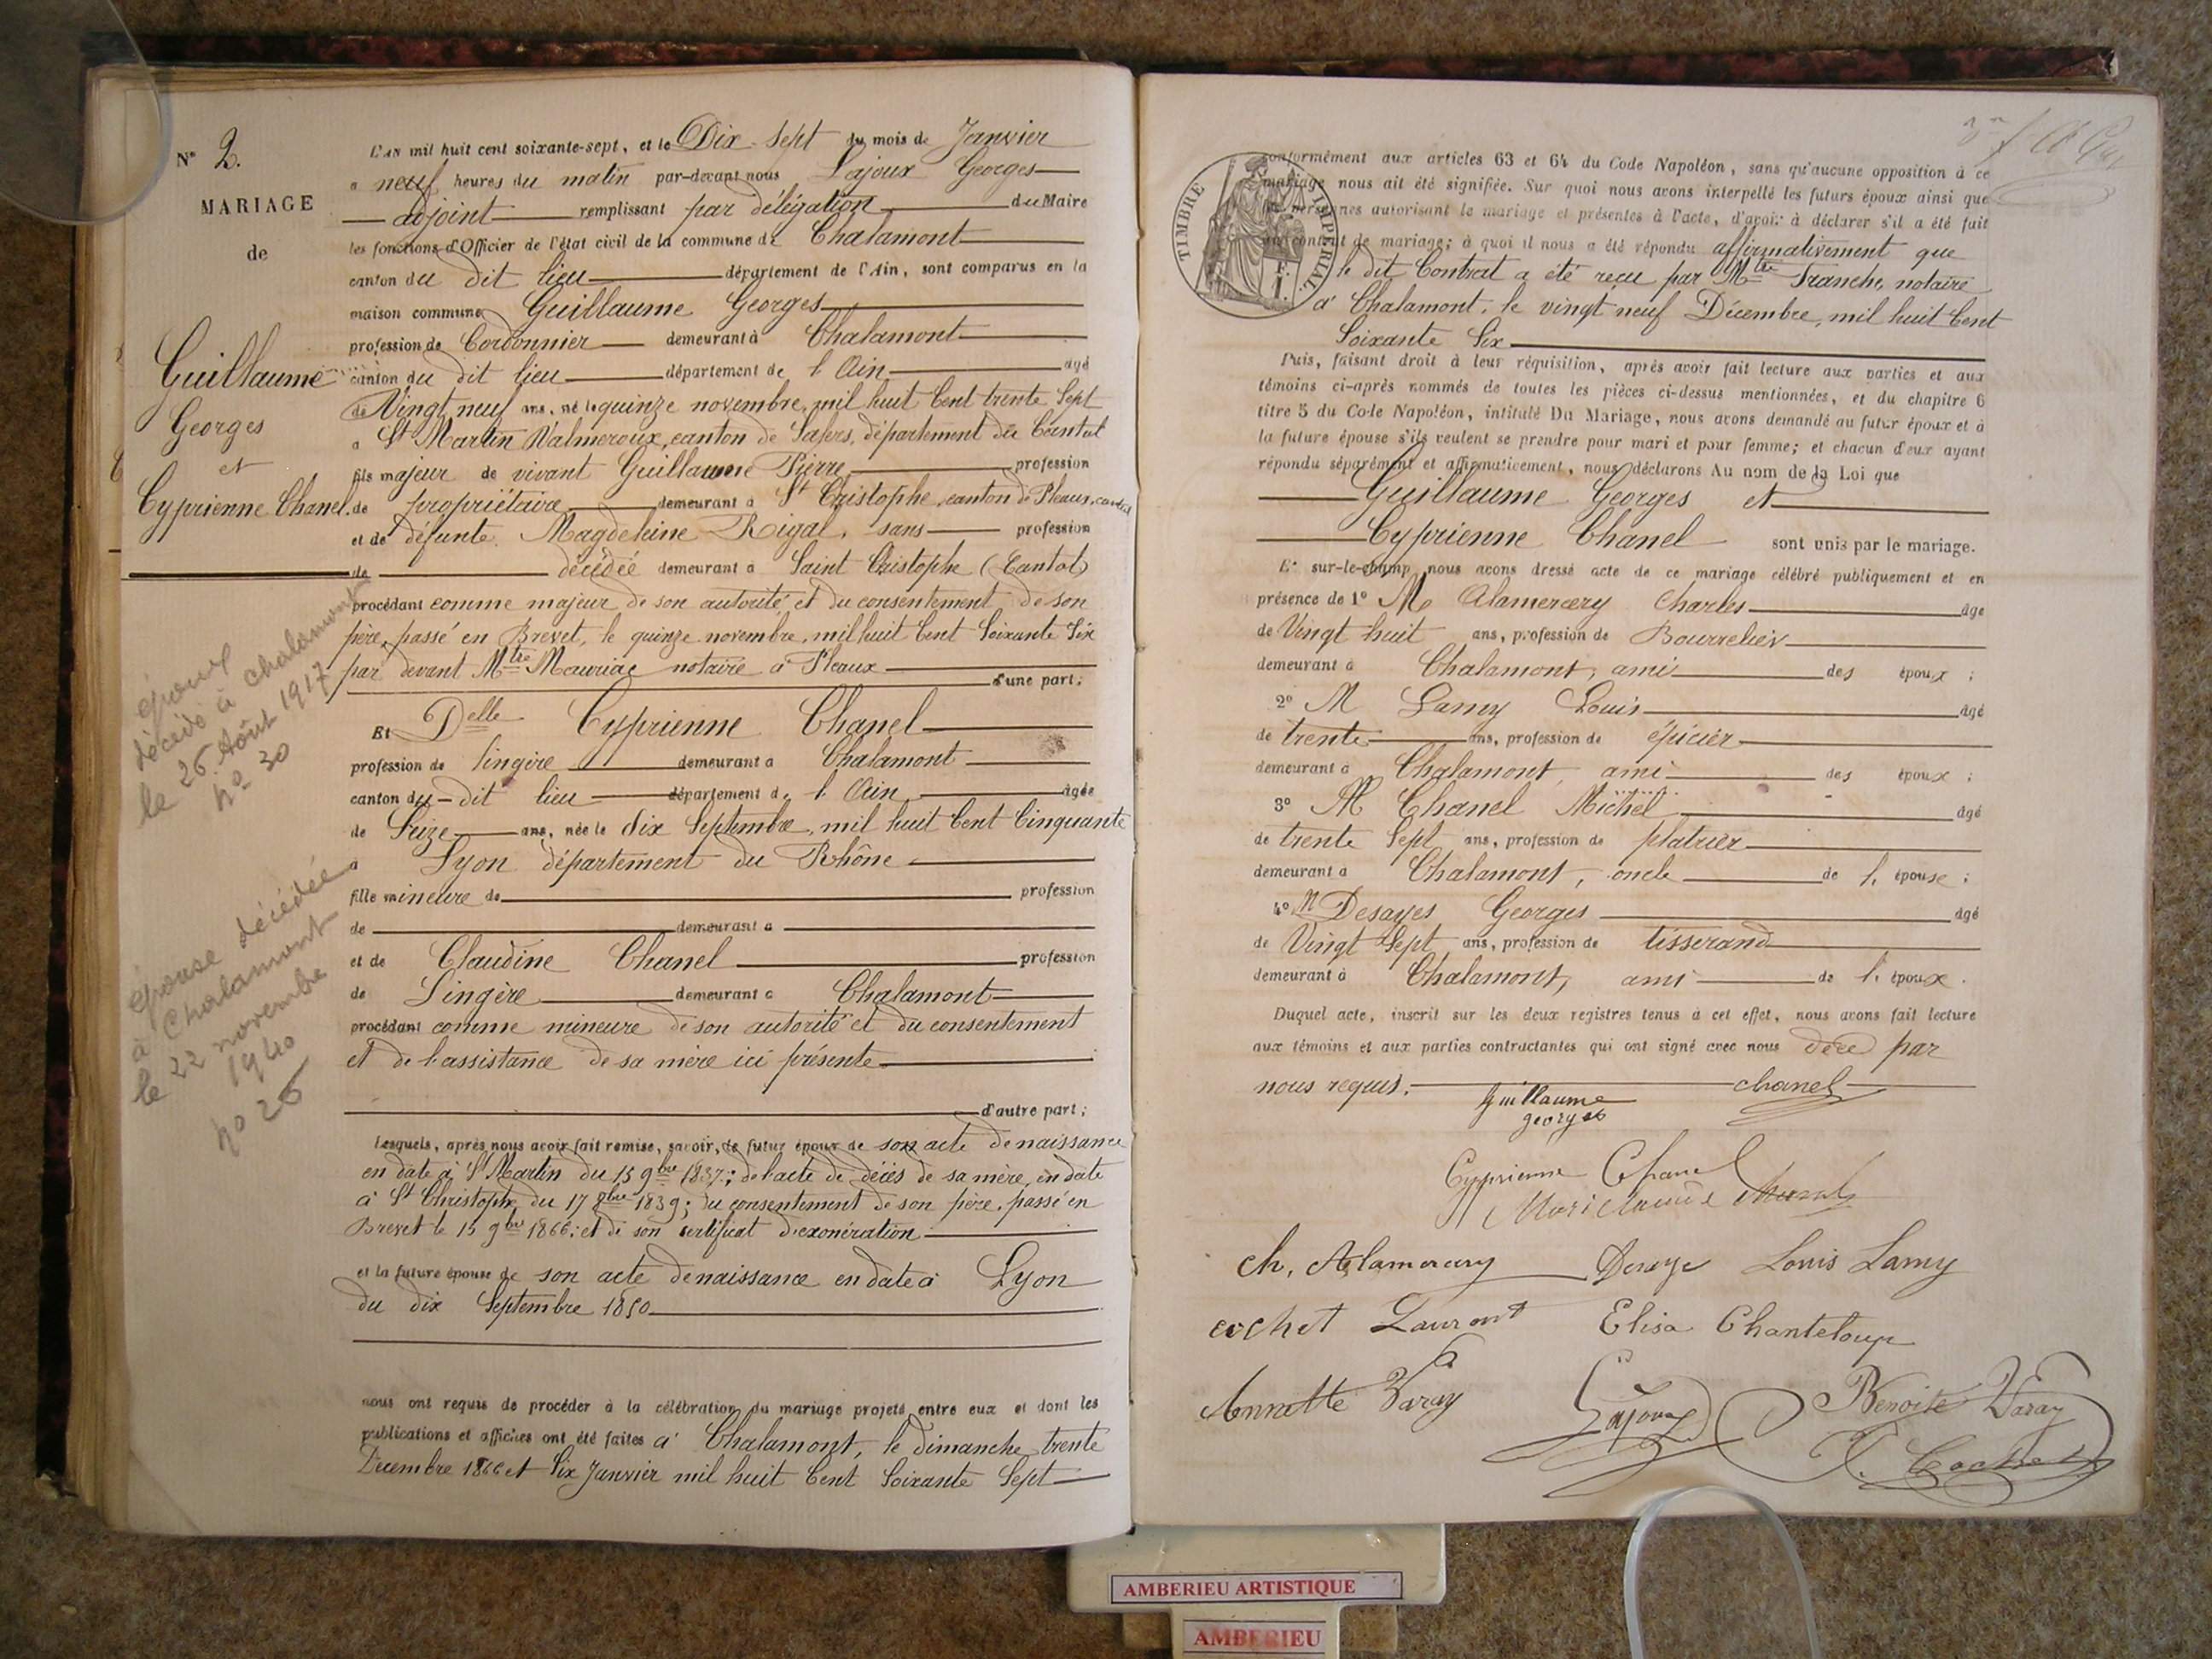 N° 2.
MARIAGE
de
Guillaume
Georges
et
Cyprienne Chanel.
époux
décédé à Chalamont
le 26 Août 1917
no 30
épouse décédée
à Chalamont
le 22 novembre
1940
no 26
L'AN mil huit cent soixante-sept, et le Dix-Sept du mois de Janvier
a neuf heures du matin par-devant nous Lajoux Georges
adjoint remplissant par délégation du Maire
les fonctions d'Officier de l'état civil de la commune de Chalamont
canton du dit lieu département de l'Ain, sont comparus en la
maison commune Guillaume Georges
profession de Cordonnier demeurant à Chalamont
canton du dit lieu département de l'Ain âgé
de Vingt neuf ans, né le quinze novembre, mil huit Cent trente Sept
a St Martin Valmeroux, canton de Salers, département du Cantal
fils majeur de vivant Guillaume Pierre profession
de propriétaire demeurant a St Christophe, canton de Pleaux, cantal
et de défunte Magdeleine Rigal, sans profession
de décédée demeurant a Saint Christophe (Cantal)
procédant comme majeur de son autorité et du consentement de son
père, passé en Brevet, le quinze novembre, mil huit Cent Soixante Six
par devant Mtre Mauriac notaire à Pleaux
d'une part;
Et Delle Cyprienne Chanel
profession de lingère demeurant a Chalamont
canton du-dit lieu département de l'Ain âgée
de Seize ans, née le dix Septembre, mil huit Cent Cinquante
a Lyon département du Rhône
fille mineure de profession
de demeurant a
et de Claudine Chanel profession
de Lingère demeurant a Chalamont
procédant comme mineure de son autorité et du consentement
et de l'assistance de sa mère ici présente
d'autre part;
Lesquels, après nous avoir fait remise, savoir, le futur époux de son acte de naissance
en date à St Martin du 15 9bre 1837; de l'acte de décès de sa mère, en date
à St Christophe du 17 8bre 1839; du consentement de son père, passé en
Brevet le 15 9bre 1866; et de son certificat d'exonération
et la future épouse de son acte de naissance en date à Lyon
du dix Septembre 1850
nous ont requis de procéder à la célébration du mariage projeté entre eux et dont les
publications et affiches ont été faites à Chalamont, le dimanche trente
Décembre 1866 et Six Janvier mil huit Cent Soixante Sept
TIMBRE IMPERIAL
conformément aux articles 63 et 64 du Code Napoléon, sans qu'aucune opposition à ce
mariage nous ait été signifiée. Sur quoi nous avons interpellé les futurs époux ainsi que
les personnes autorisant le mariage et présentes à l'acte, d'avoir à déclarer s'il a été fait
un contrat de mariage; à quoi il nous a été répondu affirmativement que
le dit Contrat a été reçu par Mtre Tranche, notaire
à Chalamont, le vingt neuf Décembre, mil huit Cent
Soixante Six
Puis, faisant droit à leur réquisition, après avoir fait lecture aux parties et aux
témoins ci-après nommés de toutes les pièces ci-dessus mentionnées, et du chapitre 6
titre 5 du Code Napoléon, intitulé Du Mariage, nous avons demandé au futur époux et à
la future épouse s'ils veulent se prendre pour mari et pour femme; et chacun d'eux ayant
répondu séparément et affirmativement, nous déclarons Au nom de la Loi que
Guillaume Georges et
Cyprienne Chanel sont unis par le mariage.
Et sur-le-champ nous avons dressé acte de ce mariage célébré publiquement et en
présence de 1° M. Alamercery Charles âge
de Vingt huit ans, profession de Bourrelier
demeurant a Chalamont, ami des époux;
2° M Lamy Louis âgé
de trente ans, profession de épicier
demeurant a Chalamont, ami des époux;
3° M Chanel Michel âgé
de trente Sept ans, profession de platrier
demeurant a Chalamont, oncle de l'épouse;
4° M Desayes Georges âgé
de Vingt Sept ans, profession de tisserand
demeurant à Chalamont, ami de l'époux.
Duquel acte, inscrit sur les deux registres tenus à cet effet, nous avons fait lecture
aux témoins et aux parties contractantes qui ont signé avec nous de ce par
nous requis. chanel
guillaume
georges
Cyprienne Chanel
Ch. Alamercery Desaye Louis Lamy
cochet Laurent Elisa Chanteloup
Annette Varay Lajoux Benoite Varay
Cochet
AMBERIEU ARTISTIQUE
AMBERIEU